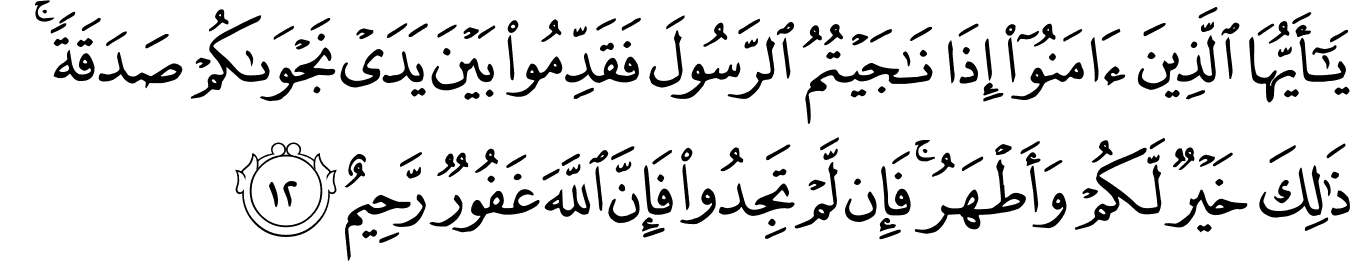 يَـٰٓأَيُّهَا ٱلَّذِينَ ءَامَنُوٓا۟ إِذَا نَـٰجَيْتُمُ ٱلرَّسُولَ فَقَدِّمُوا۟ بَيْنَ يَدَىْ نَجْوَىٰكُمْ صَدَقَةً ۚ
ذَٰلِكَ خَيْرٌ لَّكُمْ وَأَطْهَرُ ۚ فَإِن لَّمْ تَجِدُوا۟ فَإِنَّ ٱللَّهَ غَفُورٌ رَّحِيمٌ ١٢